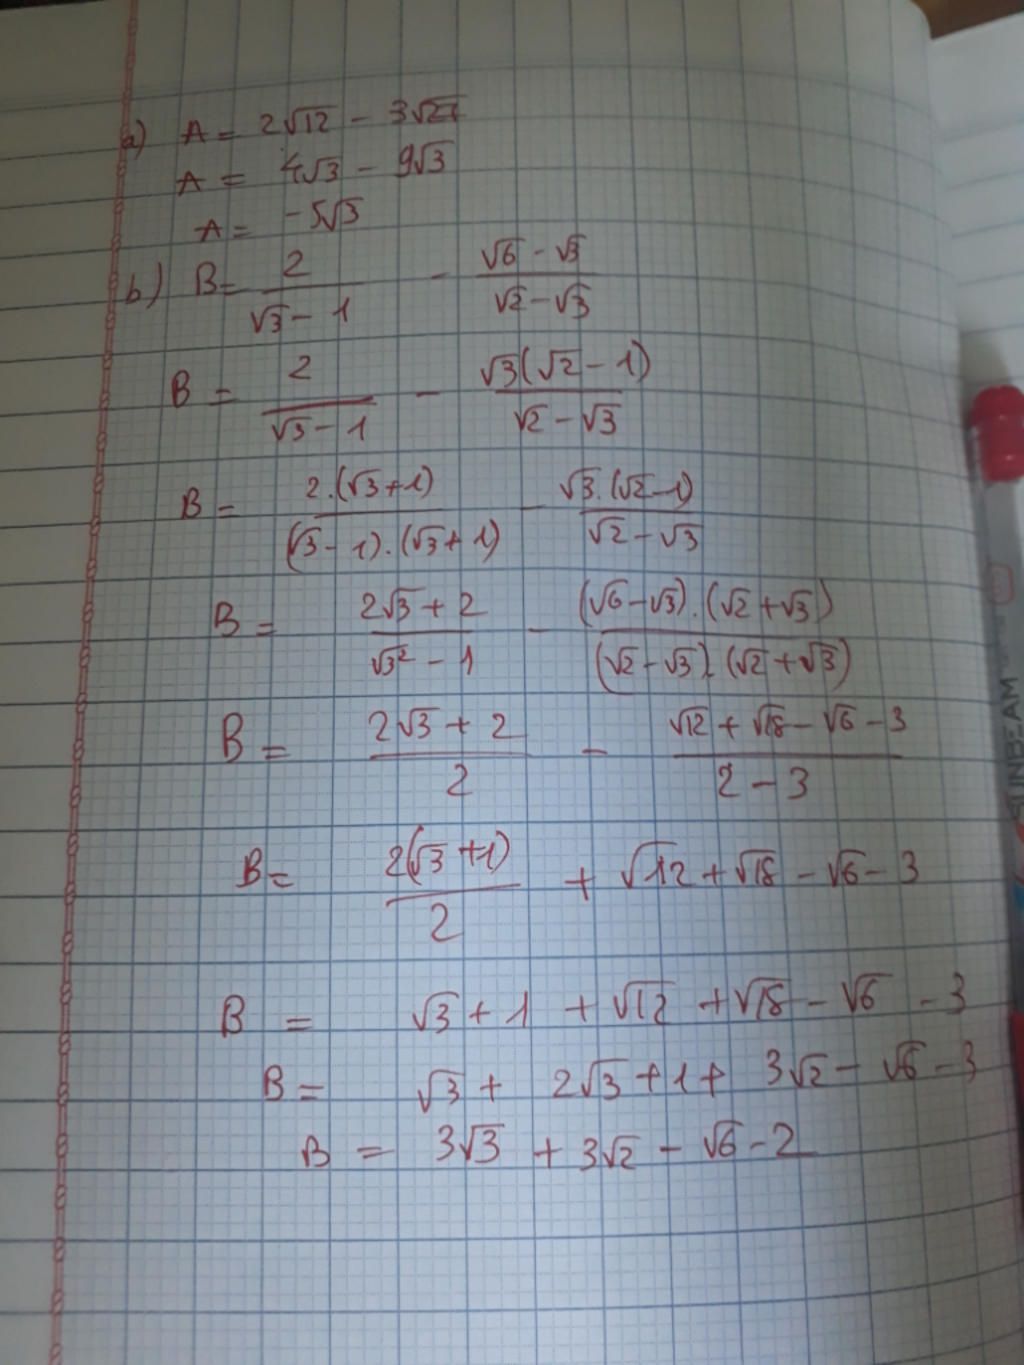 a) A = 2√12 - 3√27
A = 4√3 - 9√3
A = -5√3
b) B = 2/(√3 - 1) - (√6 - √3)/(√2 - √3)
B = 2/(√3 - 1) - √3(√2 - 1)/(√2 - √3)
B = 2.(√3+1)/((√3 - 1).(√3 + 1)) - √3.(√2-1)/(√2 - √3)
B = (2√3 + 2)/(√3² - 1) - (√6-√3).(√2+√3)/((√2 - √3).(√2 + √3))
B = (2√3 + 2)/2 - (√12 + √18 - √6 - 3)/(2 - 3)
B = 2(√3+1)/2 + √12 + √18 - √6 - 3
B = √3 + 1 + √12 + √18 - √6 - 3
B = √3 + 2√3 + 1 + 3√2 - √6 - 3
B = 3√3 + 3√2 - √6 - 2
SUNBEAM